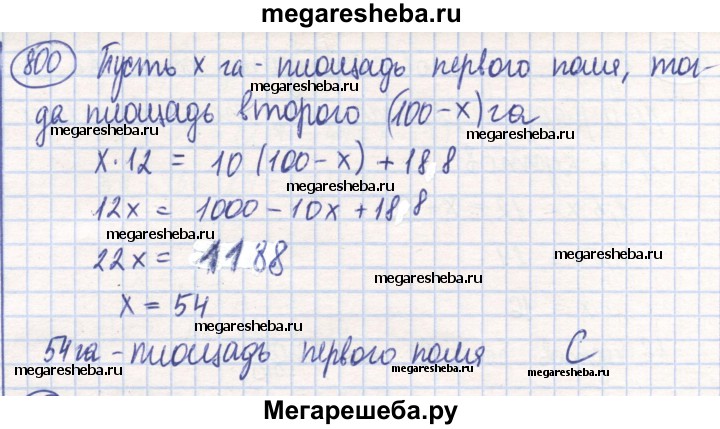 megaresheba.ru
800 Пусть х га - площадь первого поля, тог-
megaresheba.ru
да площадь второго (100-х)га
megaresheba.ru megaresheba.ru
х·12 = 10(100-х)+188
megaresheba.ru
12х = 1000-10х+188
megaresheba.ru
22х = 1188
megaresheba.ru
х = 54
megaresheba.ru
54га - площадь первого поля С
megaresheba.ru megaresheba.ru megaresheba.ru
Мегарешеба.ру